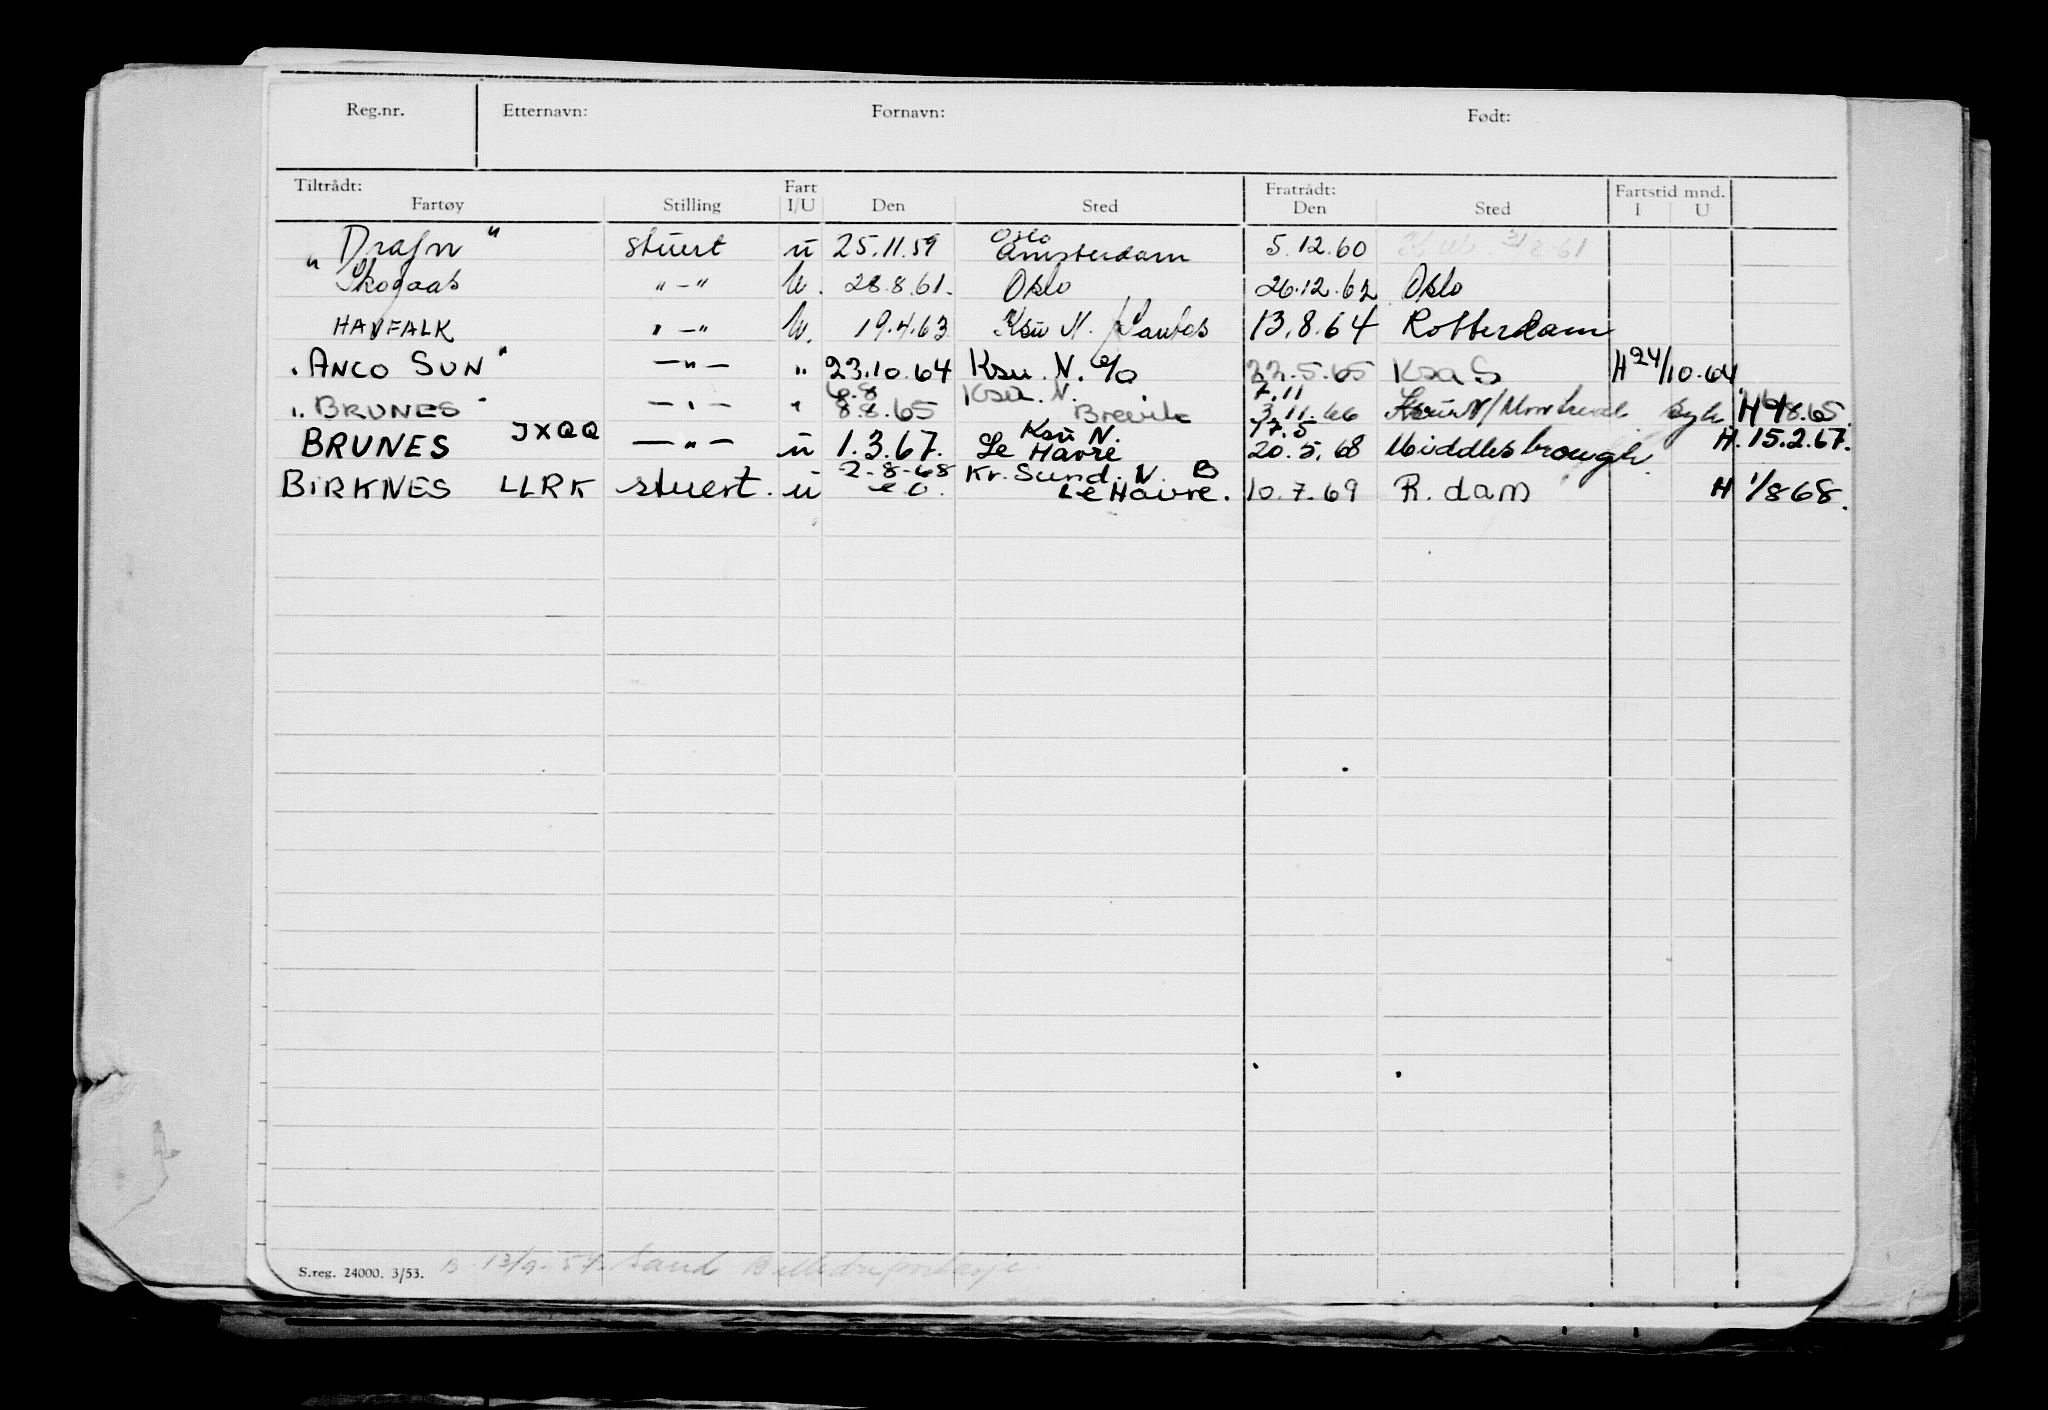 Reg.nr. Etternavn: Fornavn: Født:
Tiltrådt: Fartøy Stilling Fart I/U Den Sted Fratrådt: Den Sted Fartstid mnd. I U
"Drafn" stuert u 25.11.59 Oslo Amsterdam 5.12.60 31/8-61
"Skogaas -"- U. 28.8.61. Oslo 26.12.62 Oslo
HAVFALK -"- U. 19.4.63 Ksu N. / 13.8.64 Rotterdam
"ANCO SUN" -"- " 23.10.64 Ksu. N. 22.5.65 Ksa S H 24/10.64
6.8 Ksu. N. 7.11
"BRUNES" -"- " 8.8.65 Brevik 3.11.66 Ksu N/Montreal H 4/8.65
Ksu N. 17.5
BRUNES JXQQ -"- u 1.3.67. Le Havre 20.5.68 Middlesbrough. H. 15.2.67.
2-8-68 Kr. Sund. N. B
BIRKNES LLRK stuert. u Le Havre. 10.7.69 R.dam H 1/8 68.
S.reg. 24000. 3/53. 13/9-57. Sand